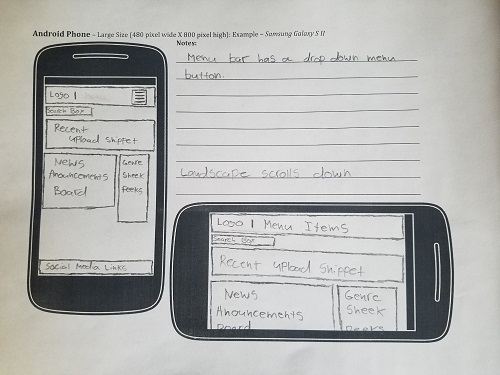 Android Phone – Large Size (480 pixel wide X 800 pixel high): Example – Samsung Galaxy S II
Notes:
Menu bar has a drop down menu
button.
Landscape scrolls down
Logo |
Search Box
Recent
upload snippet
News
Anouncements
Board
Genre
Sheek
Peeks
Social Media Links
Logo | Menu Items
Search Box
Recent upload snippet
News
Anouncements
Board
Genre
Sheek
Peeks